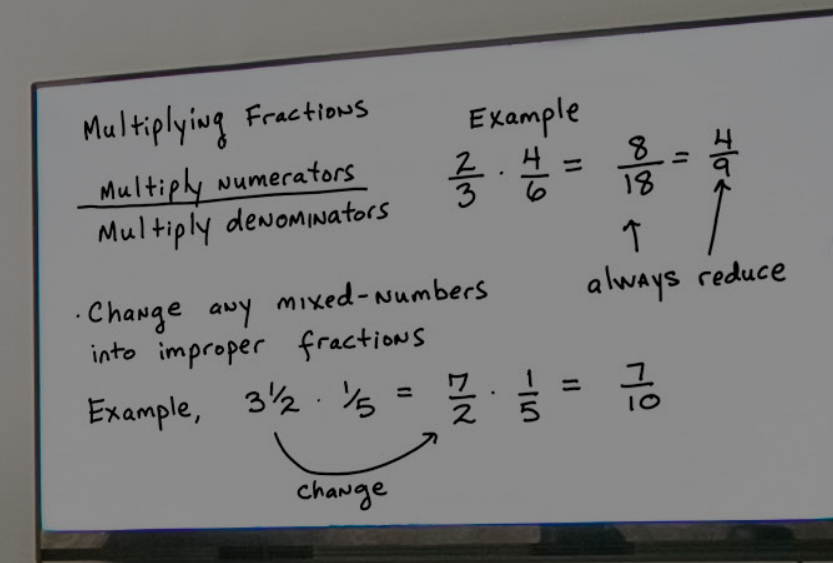 Multiplying Fractions
Multiply numerators
Multiply denominators
Example
2/3 · 4/6 = 8/18 = 4/9
always reduce
· Change any mixed-numbers
into improper fractions
Example, 3 1/2 · 1/5 = 7/2 · 1/5 = 7/10
change